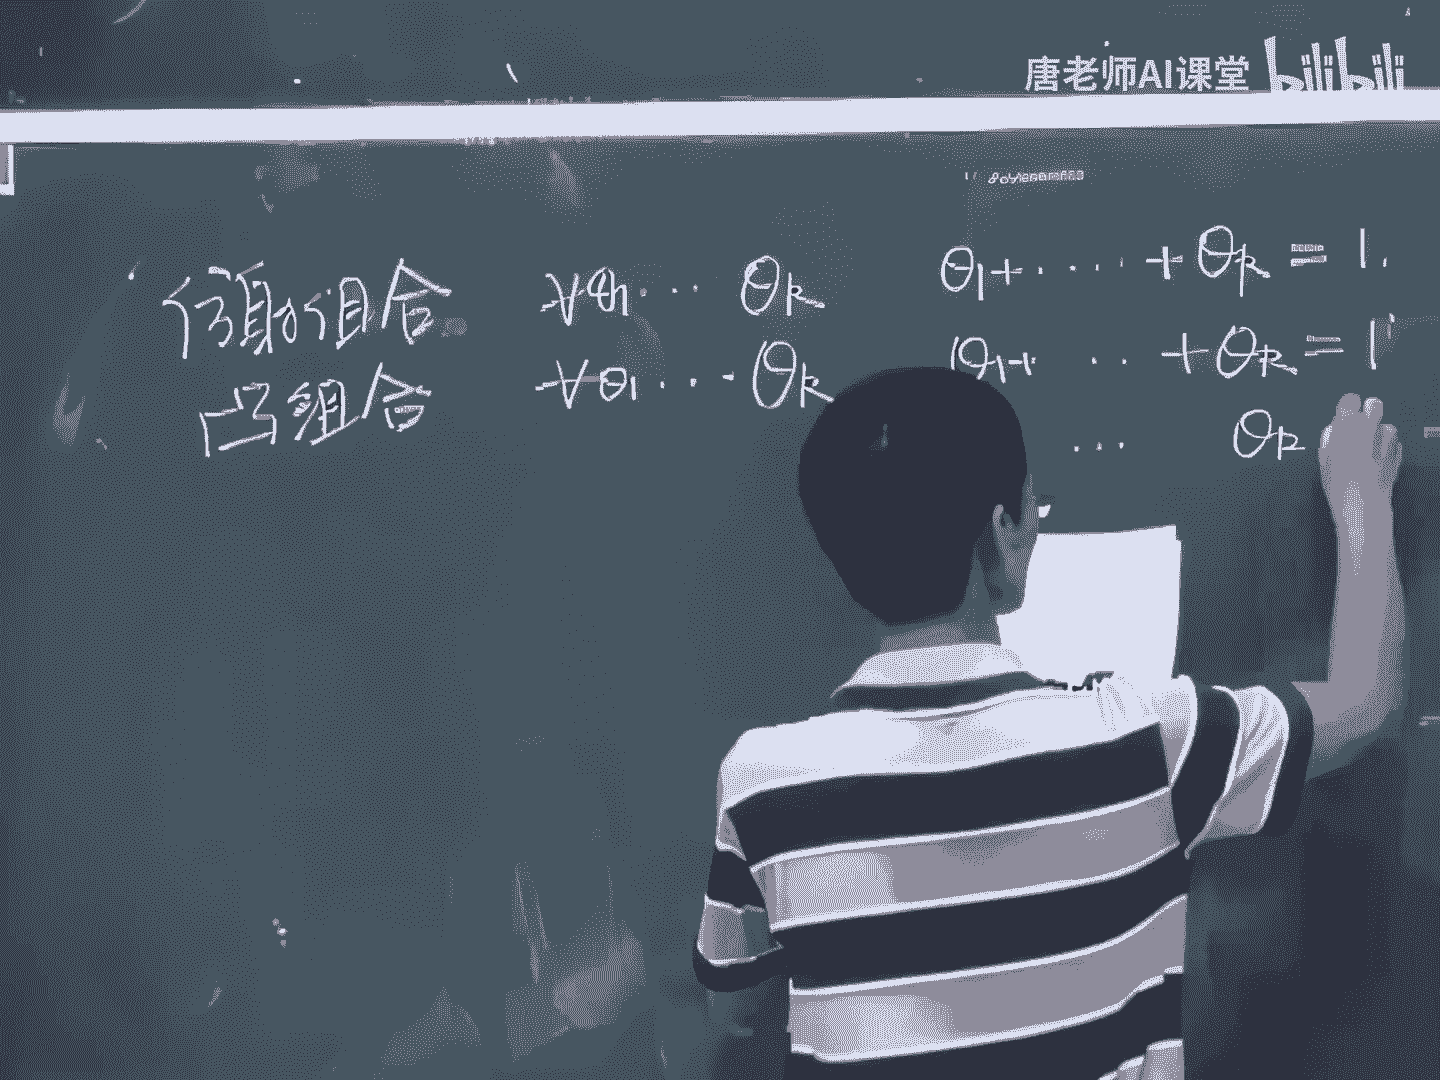 唐老师AI课堂 bilibili
仿射组合 ∀θ₁ ··· θₖ θ₁+ ···· +θₖ = 1.
凸组合 ∀θ₁ ··· θₖ θ₁+ ·· +θₖ = 1
··· θₖ